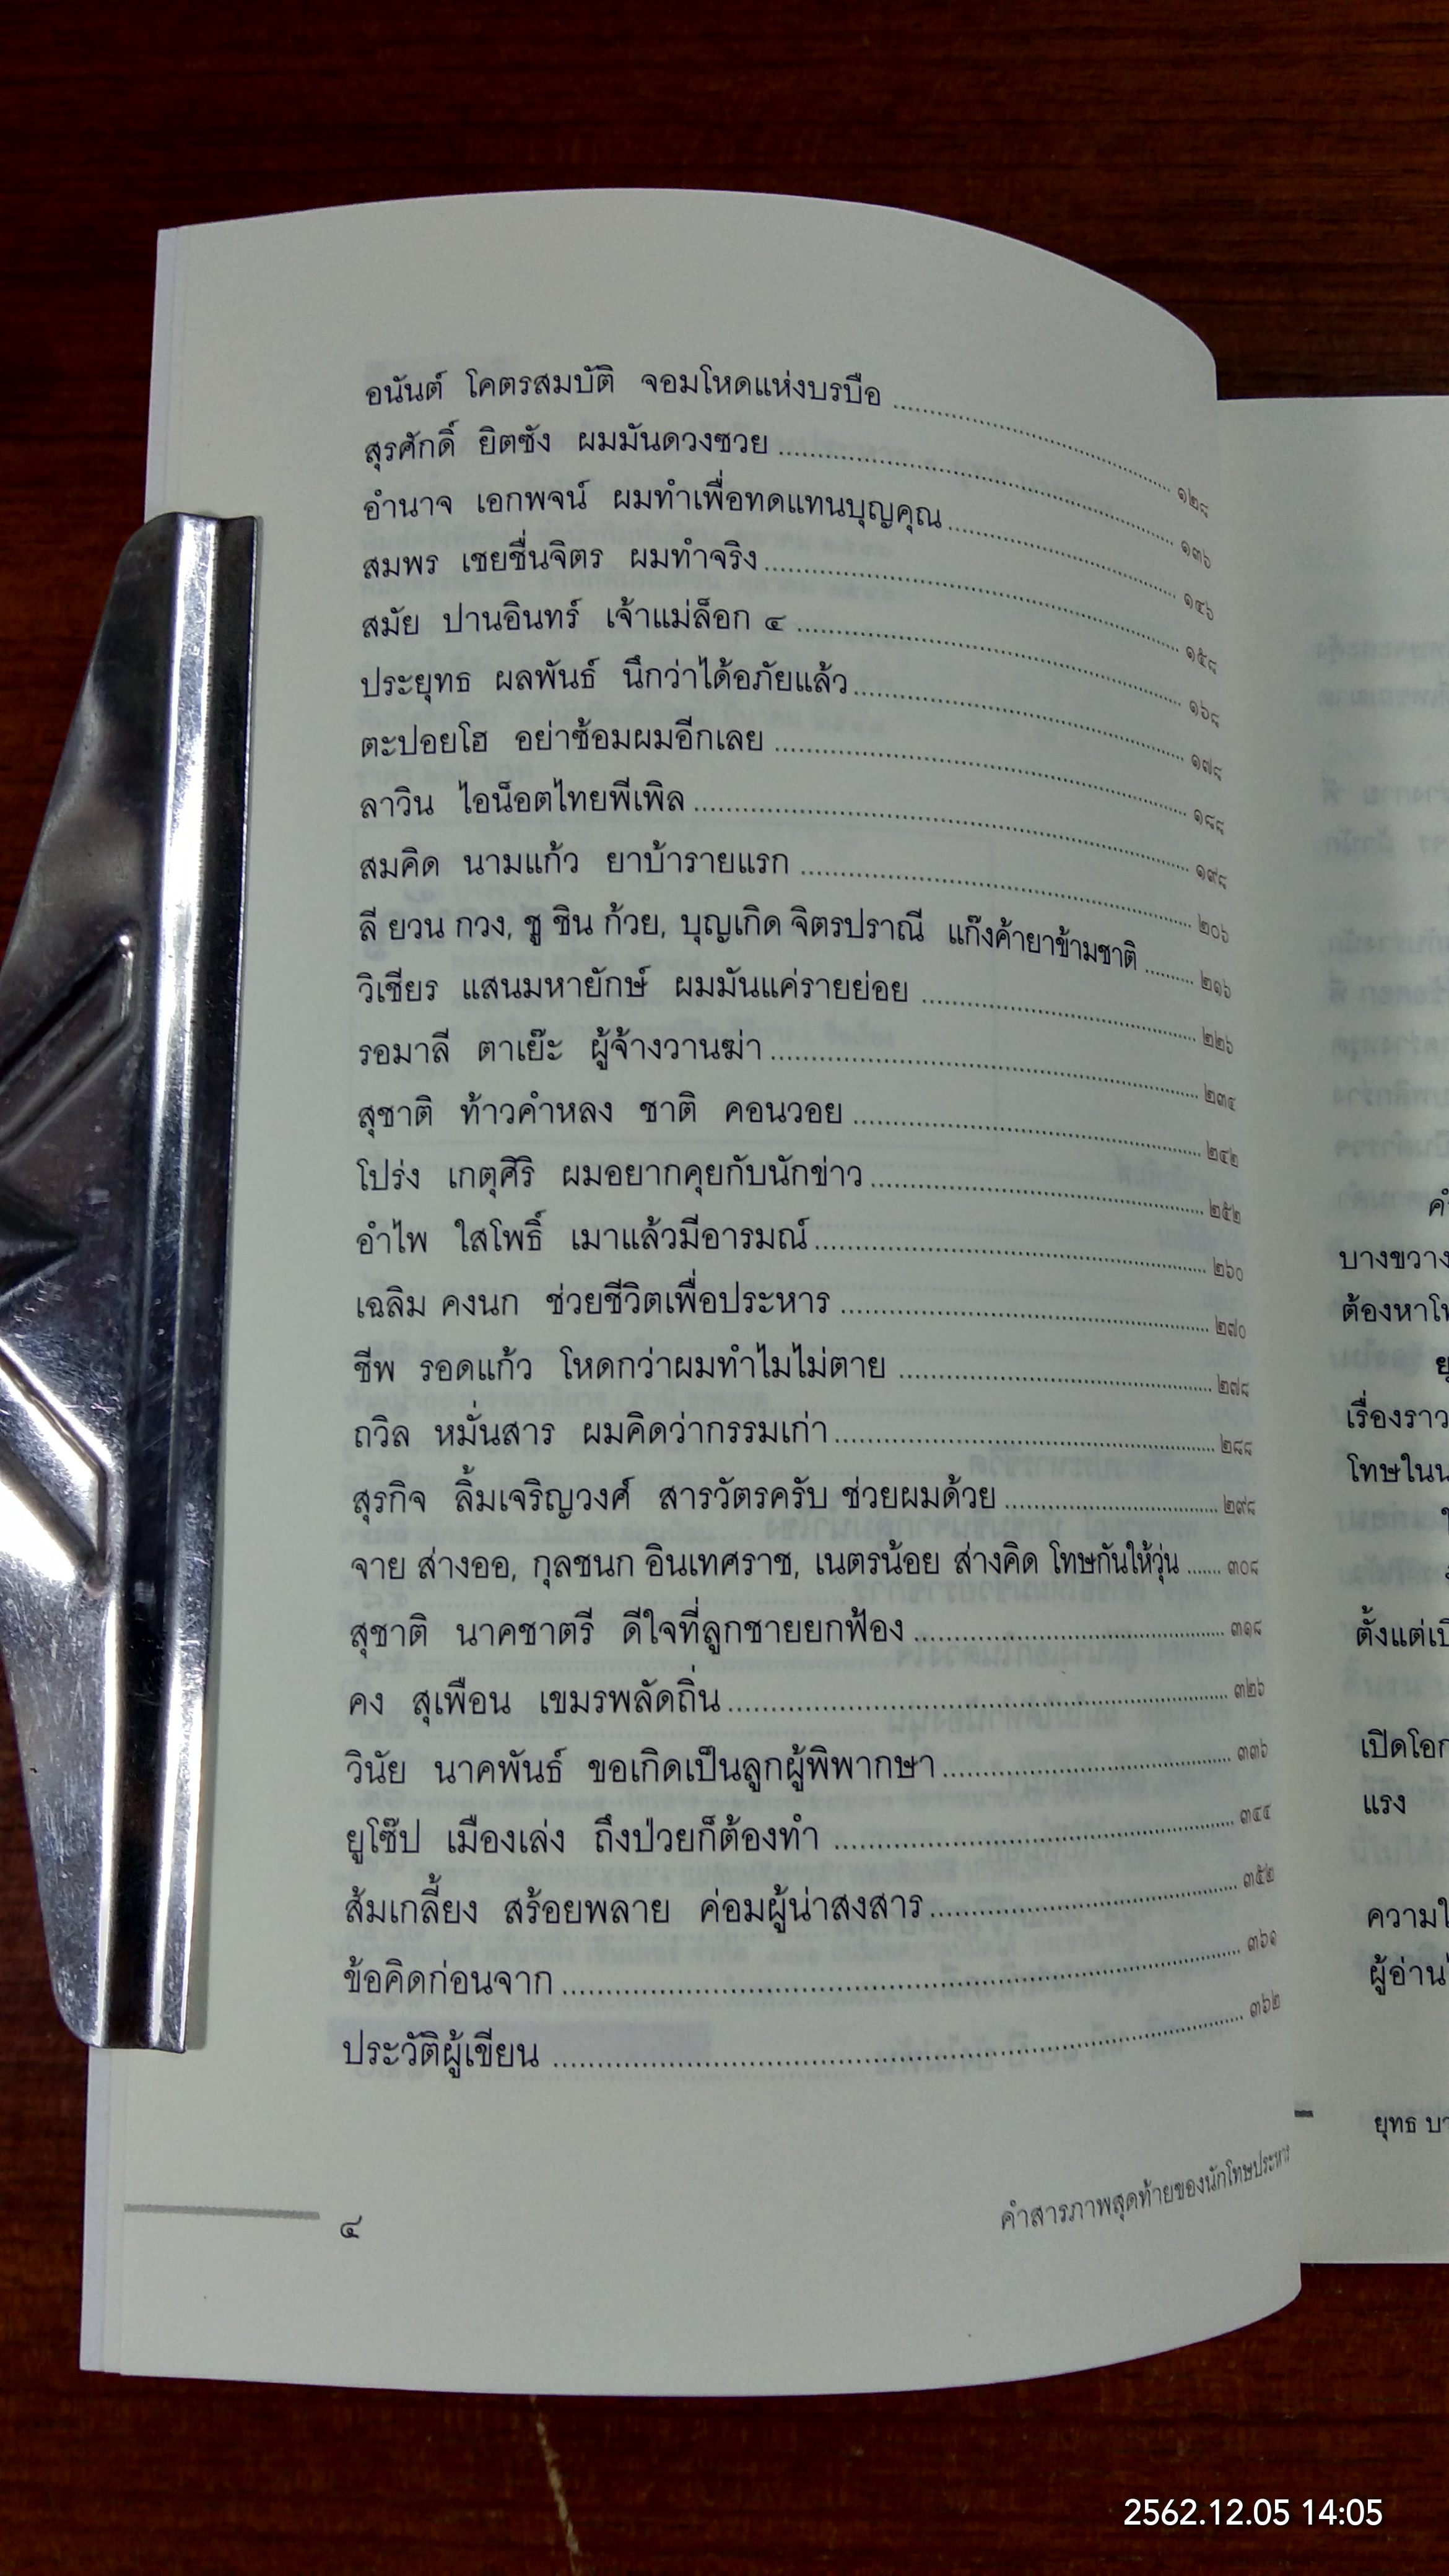 อนันต์ โคตรสมบัติ จอมโหดแห่งบรบือ ๑๒๘
สุรศักดิ์ ยิตซัง ผมมันดวงซวย ๑๓๖
อำนาจ เอกพจน์ ผมทำเพื่อทดแทนบุญคุณ ๑๔๖
สมพร เชยชื่นจิตร ผมทำจริง ๑๕๘
สมัย ปานอินทร์ เจ้าแม่ล็อก ๔ ๑๖๘
ประยุทธ ผลพันธ์ นึกว่าได้อภัยแล้ว ๑๗๘
ตะปอยโฮ อย่าซ้อมผมอีกเลย ๑๘๘
ลาวิน ไอน็อตไทยพีเพิล ๑๙๘
สมคิด นามแก้ว ยาบ้ารายแรก ๒๐๖
ลี ยวน กวง, ชู ชิน ก้วย, บุญเกิด จิตรปราณี แก๊งค้ายาข้ามชาติ ๒๑๖
วิเชียร แสนมหายักษ์ ผมมันแค่รายย่อย ๒๒๖
รอมาลี ตาเย๊ะ ผู้จ้างวานฆ่า ๒๓๔
สุชาติ ท้าวคำหลง ชาติ คอนวอย ๒๔๒
โปร่ง เกตุศิริ ผมอยากคุยกับนักข่าว ๒๕๒
อำไพ ใสโพธิ์ เมาแล้วมีอารมณ์ ๒๖๐
เฉลิม คงนก ช่วยชีวิตเพื่อประหาร ๒๗๐
ชีพ รอดแก้ว โหดกว่าผมทำไมไม่ตาย ๒๗๘
ถวิล หมั่นสาร ผมคิดว่ากรรมเก่า ๒๘๘
สุรกิจ ลิ้มเจริญวงศ์ สารวัตรครับ ช่วยผมด้วย ๒๙๘
จาย ส่างออ, กุลชนก อินเทศราช, เนตรน้อย ส่างคิด โทษกันให้วุ่น ๓๐๘
สุชาติ นาคชาตรี ดีใจที่ลูกชายยกฟ้อง ๓๑๘
คง สุเพือน เขมรพลัดถิ่น ๓๒๖
วินัย นาคพันธ์ ขอเกิดเป็นลูกผู้พิพากษา ๓๓๖
ยูโซ๊ป เมืองเล่ง ถึงป่วยก็ต้องทำ ๓๔๔
ส้มเกลี้ยง สร้อยพลาย ค่อมผู้น่าสงสาร ๓๕๒
ข้อคิดก่อนจาก ๓๖๑
ประวัติผู้เขียน ๓๖๒
๔ คำสารภาพสุดท้ายของนักโทษประหาร
บางขวาง
ต้องหาโท
เรื่องราว
โทษในน
ตั้งแต่เปิ
เปิดโอก
แรง
ความใ
ผู้อ่าน
ยุทธ บา
2562.12.05 14:05